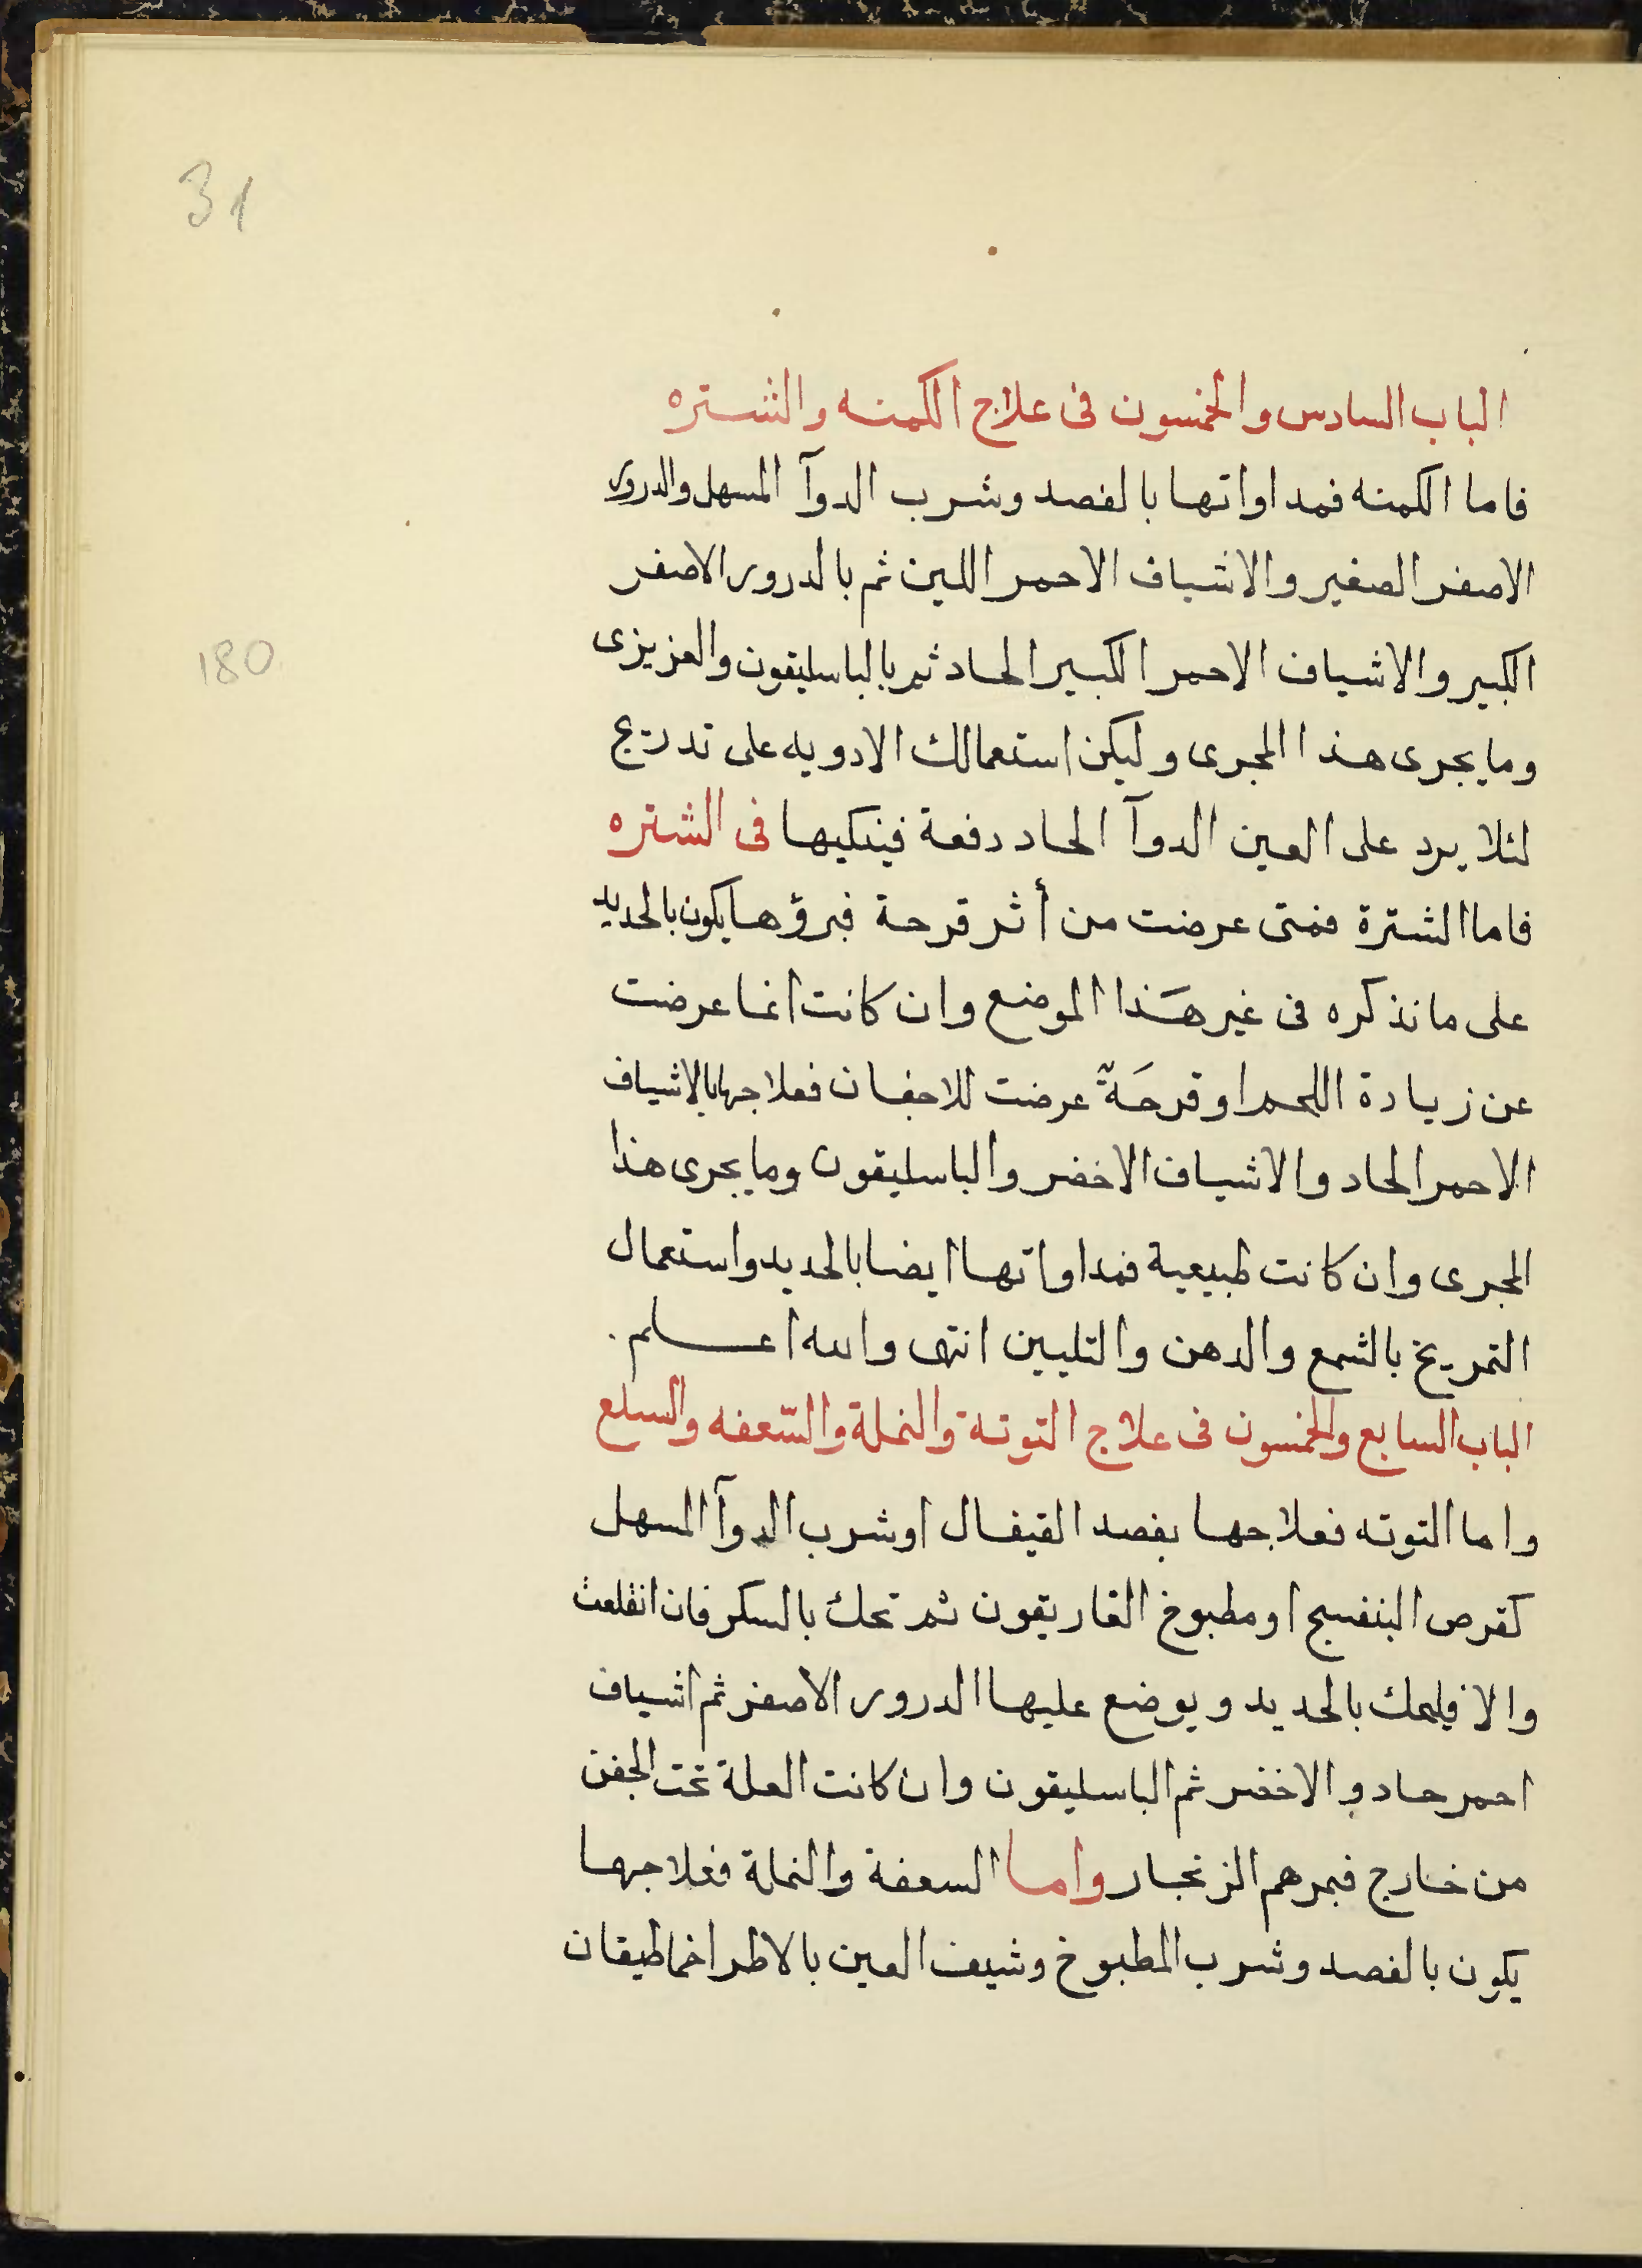 31
الباب السادس والخمسون فى علاج الكمنه والشتره
فاما الكمنه فمداواتها بالفصد وشرب الدوآ المسهل والدرور
الاصفر الصغير والاشياف الاحمر اللين ثم بالدرور الاصفر
180
الكبير والاشياف الاحمر الكبير الحاد ثم بالباسليقون والعزيزى
وما يجرى هذا المجرى وليكن استعمالك الادويه على تدريج
لئلا يرد على العين الدوآ الحاد دفعة فينكيها فى الشتره
فاما الشترة فمتى عرضت من أثر قرحة فبرؤها يكون بالحديد
على ما نذكره فى غير هَذا الموضع وان كانت انما عرضت
عن زيادة اللحم او قرحَةً عرضت للاجفان فعلاجها بالاشياف
الاحمر الحاد والاشياف الاخضر والباسليقون وما يجرى هذا
المجرى وان كانت طبيعية فمداواتها ايضا بالحديد واستعمال
التمريخ بالشمع والدهن والتليين انتهى والله اعلم .
الباب السابع والخمسون فى علاج التوتة والنملة والسّعفه والسلع
واما التوته فعلاجها بفصد القيفال او شرب الدوآ المسهل
كقرص البنفسج او مطبوخ الغاريقون ثم تحك بالسكر فان انقلعت
والا فليحك بالحديد ويوضع عليها الدرور الاصفر ثم اشياف
احمر حاد والاخضر ثم الباسليقون وان كانت العلة تحت الجفن
من خارج فبمرهم الزنجار واما السعفة والنملة فعلاجها
يكون بالفصد وشرب المطبوخ وشيف العين بالاطراخماطيقان